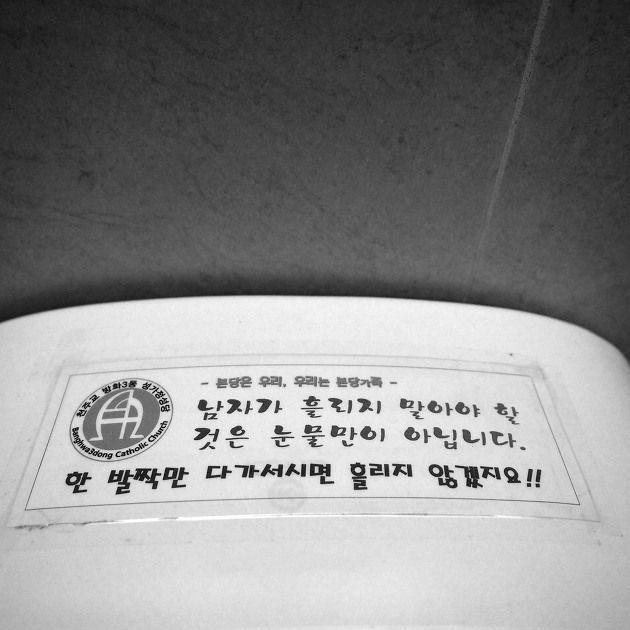 천주교 방화3동 성가정성당
Banghwa3dong Catholic Church
- 본당은 우리, 우리는 본당가족 -
남자가 흘리지 말아야 할
것은 눈물만이 아닙니다.
한 발짝만 다가서시면 흘리지 않겠지요!!